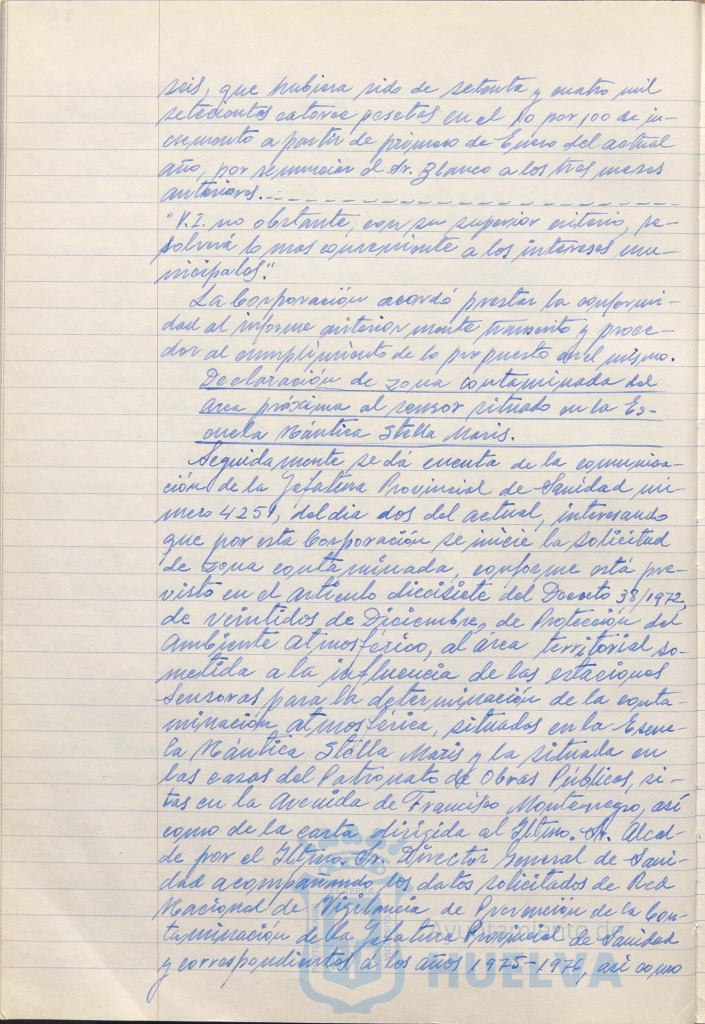 seis, que hubiera sido de setenta y cuatro mil
setecientas catorce pesetas en el 10 por 100 de in-
cremento a partir de primero de Enero del actual
año, por renunciar el Sr. Blanco a los tres meses
anteriores.
"V.I. no obstante, con su superior criterio, re-
solverá lo mas conveniente a los intereses mu-
nicipales."
La Corporación acordó prestar la conformi-
dad al informe anteriormente transcrito y proce-
der al cumplimiento de lo propuesto en el mismo.
Declaración de zona contaminada del
area próxima al sensor situado en la Es-
cuela Náutica Stella Maris.
Seguidamente se dá cuenta de la comunica-
ción de la Jefatura Provincial de Sanidad nú-
mero 4251, del dia dos del actual, interesando
que por esta Corporación se inicie la solicitud
de zona contaminada, conforme está pre-
visto en el artículo diecisiete del Decreto 38/1972,
de veintidos de Diciembre, de Protección del
Ambiente Atmosférico, al área territorial so-
metida a la influencia de las estaciones
sensoras para la determinación de la conta-
minación atmosférica, situadas en la Escue-
la Náutica Stella Maris y la situada en
las casas del Patronato de Obras Públicas, si-
tas en la Avenida de Francisco Montenegro, así
como de la carta dirigida al Iltmo. Sr. Alcal-
de por el Iltmo. Sr. Director General de Sani-
dad acompañando los datos solicitados de Red
Nacional de Vigilancia de Prevención de la Con-
taminación de la Jefatura Provincial de Sanidad
y correspondientes a los años 1975-1976, así como
Ayuntamiento de
HUELVA